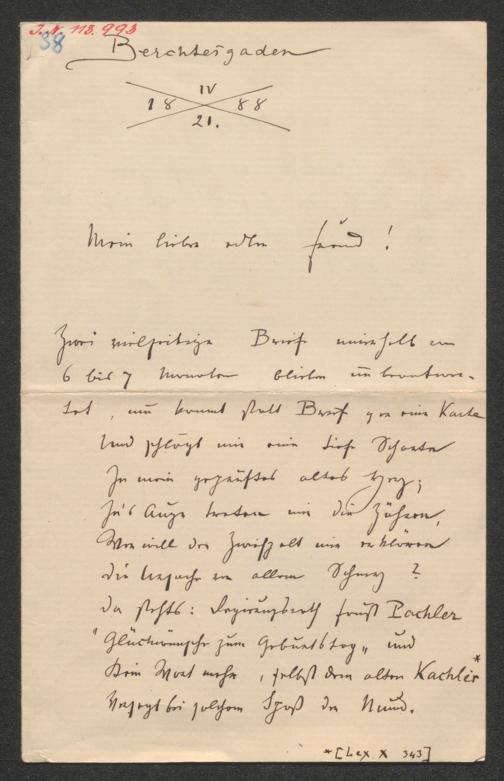 I.N. 118.993
38
Berchtesgaden
IV
18 88
21.
Mein lieber edler Freund!
Zwei vielseitige Briefe innerhalb von
6 bis 7 Monaten blieben unbeantwor-
tet, nun kommt statt Brief gar eine Karte
Und schlägt mir eine tiefe Scharte
In mein geprüftes altes Herz;
In's Auge treten mir die Zähren,
Wer will den Zwiespalt mir erklären
Die Ursache von allem Schmerz?
Da stehts: Regierungsrath Faust Pachler
"Glückwünsche zum Geburtstag" und
Kein Wort mehr, selbst dem alten Kachler*
Versagt bei solchem Spaß der Mund.
*[Lex. X 343]